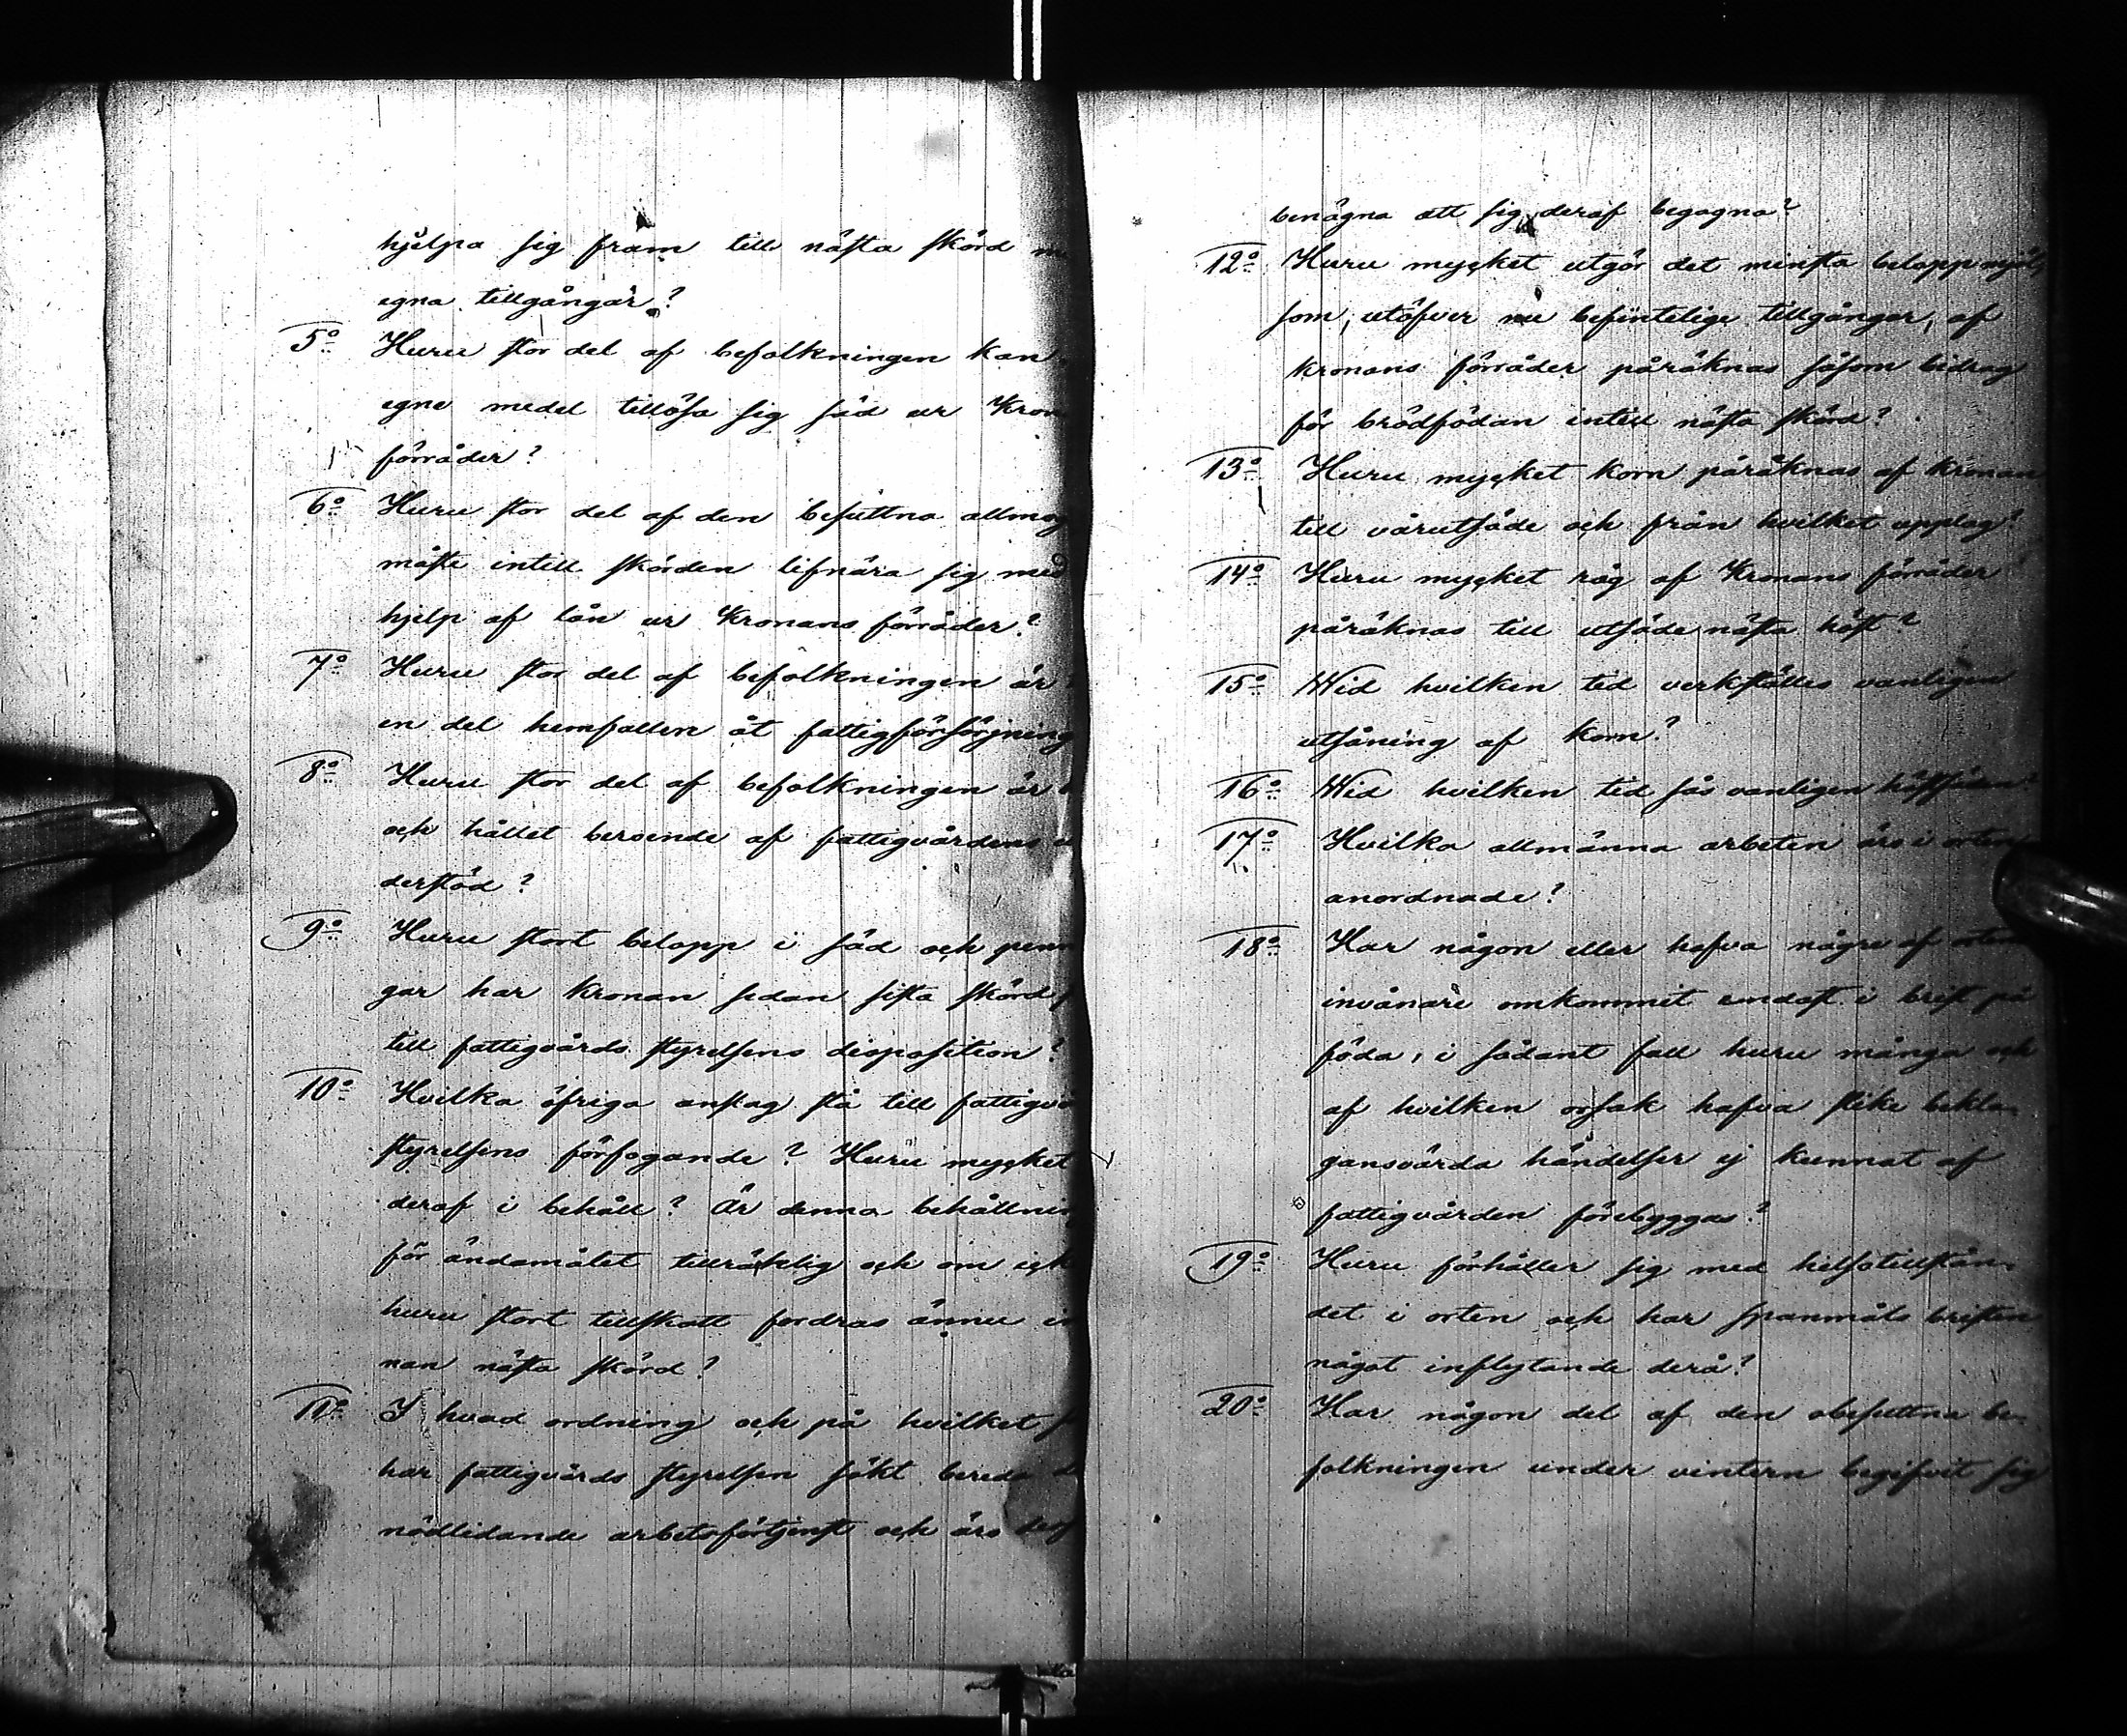 hjelpa sig fram till nästa skörd
egna tillgångar?
5o Huru stor del af befolkningen kan
egne medel tillösa sig säd ur Kron
förråder?
6o Huru stor del af den besuttna allmog
måste intill skörden lifnära sig med
hjelp af lån ur Kronans förråder?
7o Huru stor del af befolkningen är
en del hemfallen åt fattigförsörjning
8o Huru stor del af befolkningen är
och hållet beroende af fattigvårdens
derstöd?
9o Huru stort belopp i säd och pen
gar har Kronan sedan sista skörd
till fattigvårds styrelsens disposition?
10o Hvilka öfriga anslag stå till fattigvå
styrelsens förfogande? Huru mycket
deraf i behåll? Är denna behållnin
för ändamålet tillräcklig och om ick
huru stort tillskott fordras ännu in
nan nästa skörd?
11o I hvad ordning och på hvilket
har fattigvårds styrelsen sökt bereda
nödlidande arbetsförtjenst och äro
benägna att sig deraf begagna?
12o Huru mycket utgör det minsta belopp mjöl,
som, utöfver nu befintelige tillgångar, af
kronans förråder påräknas såsom bidrag
för brödfödan intill nästa skörd?
13o Huru mycket korn påräknas af kronan
till vårutsäde och från hvilket upplag?
14o Huru mycket råg af Kronans förråder
påräknas till utsäde nästa höst?
15o Wid hvilken tid verkställes vanligen
utsåning af korn?
16o Wid hvilken tid sås vanligen höstsäden?
17o Hvilka allmänna arbeten äro i orten
anordnade?
18o Har någon eller hafva några af ortens
invånare omkommit endast i brist på
föda, i sådant fall huru många och
af hvilken orsak hafva slike bekla-
gansvärda händelser ej kunnat af
fattigvården förebyggas?
19o Huru förhåller sig med helsotillstån-
det i orten och har spanmåls bristen
något inflytande derå?
20o Har någon del af den obesuttna be-
folkningen under vintern begifvit sig